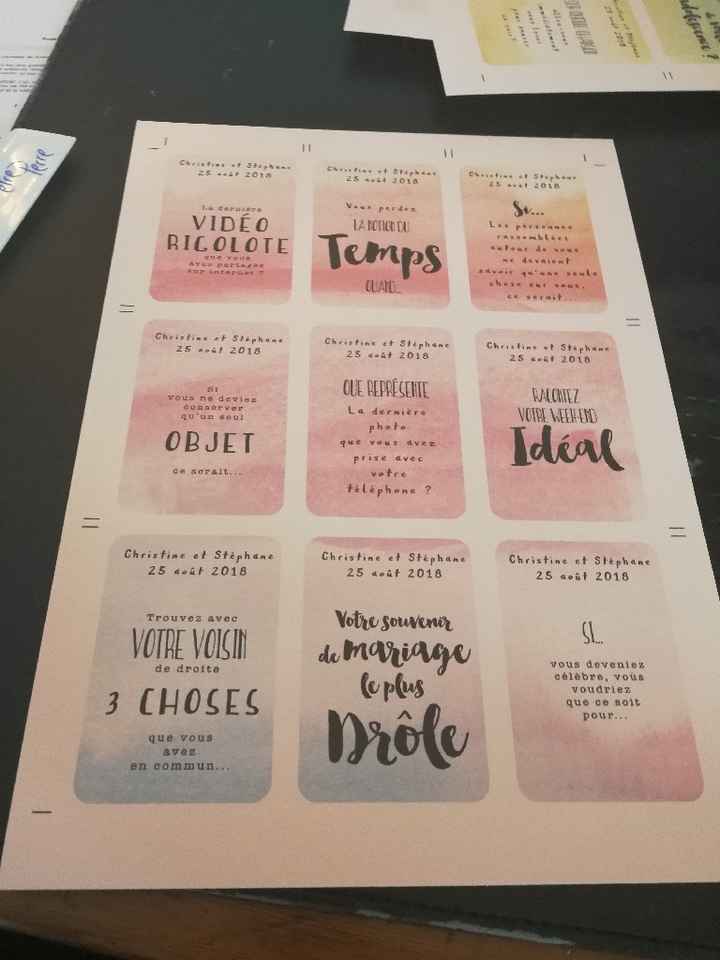 Christine et Stéphane
25 août 2018
La dernière
VIDÉO
RIGOLOTE
que vous
avez partagée
sur internet ?
Christine et Stéphane
25 août 2018
Vous perdez
LA NOTION DU
Temps
QUAND...
Christine et Stéphane
25 août 2018
Si...
Les personnes
rassemblées
autour de vous
ne devaient
savoir qu'une seule
chose sur vous,
ce serait...
Christine et Stéphane
25 août 2018
Si
vous ne deviez
conserver
qu'un seul
OBJET
ce serait...
Christine et Stéphane
25 août 2018
QUE REPRÉSENTE
La dernière
photo
que vous avez
prise avec
votre
téléphone ?
Christine et Stéphane
25 août 2018
RACONTEZ
VOTRE WEEK-END
Idéal
Christine et Stéphane
25 août 2018
Trouvez avec
VOTRE VOISIN
de droite
3 CHOSES
que vous
avez
en commun...
Christine et Stéphane
25 août 2018
Votre souvenir
de mariage
le plus
Drôle
Christine et Stéphane
25 août 2018
SI...
vous deveniez
célèbre, vous
voudriez
que ce soit
pour...